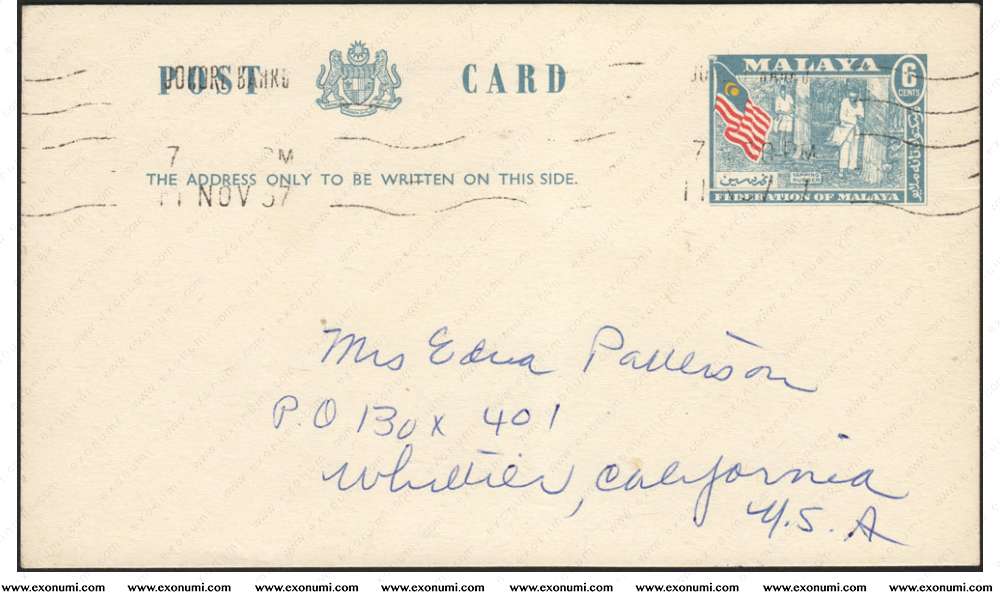 POST CARD
JOHORE BAHRU
7 PM
11 NOV 57
THE ADDRESS ONLY TO BE WRITTEN ON THIS SIDE.
MALAYA
6
CENTS
FEDERATION OF MALAYA
Mrs Edna Patterson
P.O Box 401
Whittier, California
U.S.A
www.exonumi.com www.exonumi.com www.exonumi.com www.exonumi.com www.exonumi.com www.exonumi.com www.exonumi.com www.exonumi.com